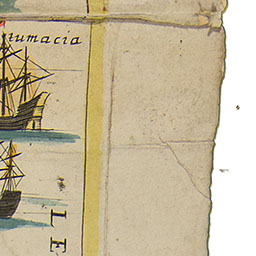 tumacia
L E